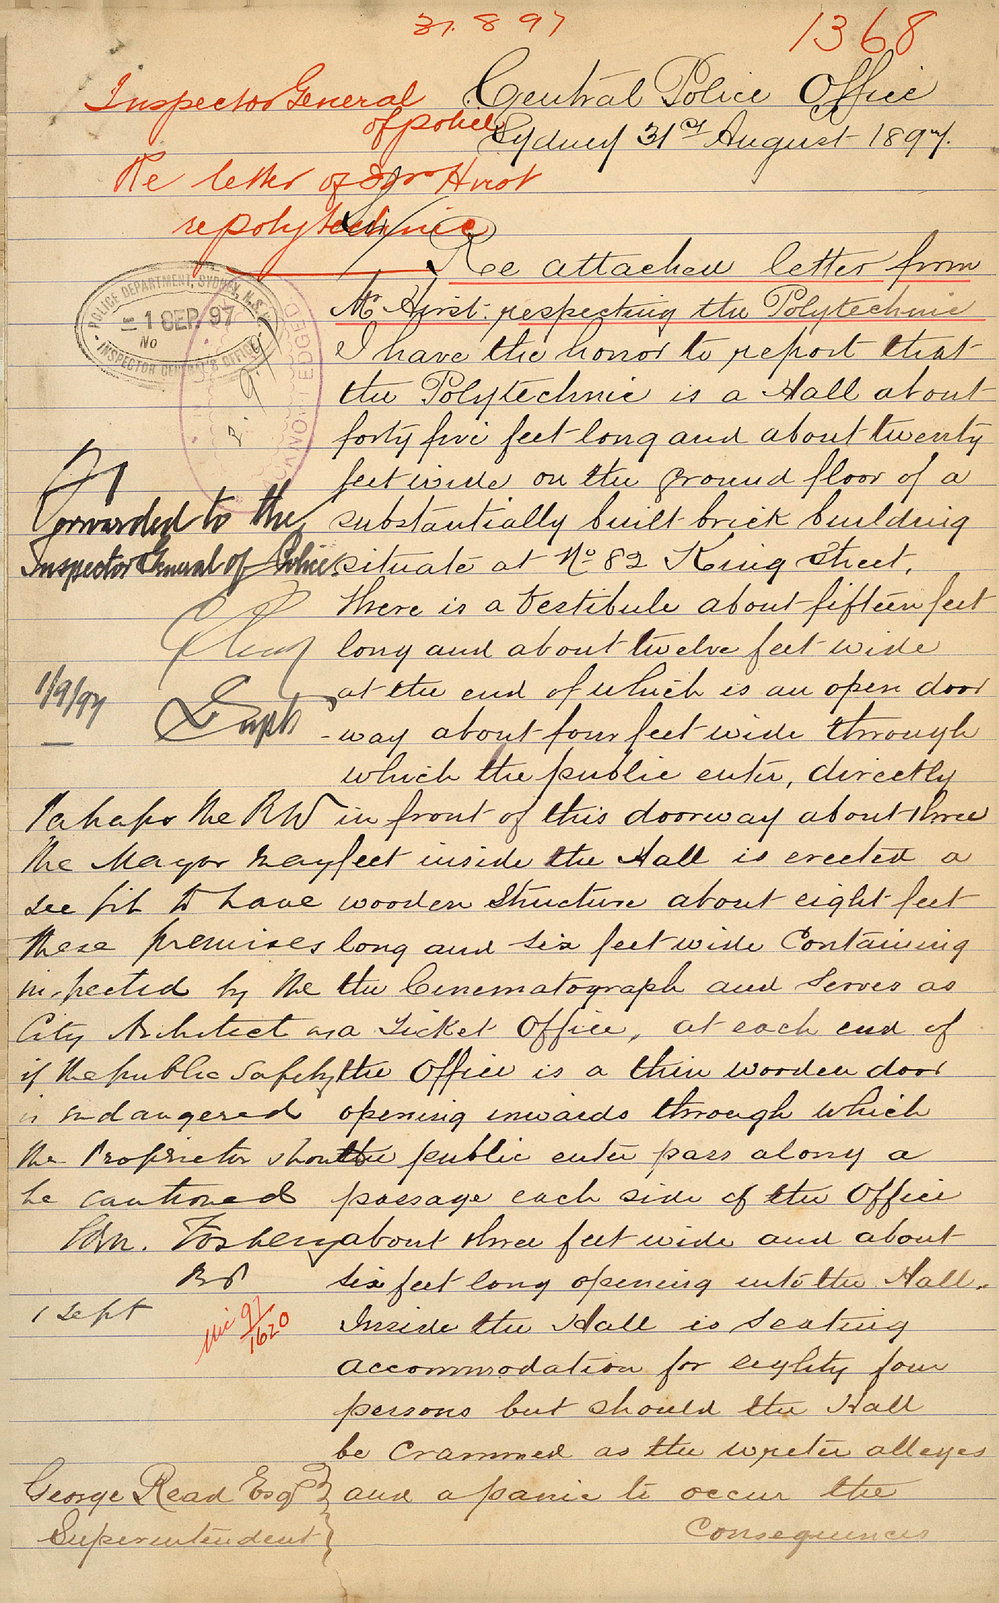 31.8.97
1368
Inspector General
of police
Re letter of Hirst
re polytechnic
Central Police Office
Sydney 31st August 1897.
Re attached letter from
Mr Hirst: respecting the Polytechnic
I have the honor to report that
the Polytechnic is a Hall about
forty five feet long and about twenty
feet wide on the ground floor of a
substantially built brick building
situate at No 82 King Street.
there is a Vestibule about fifteen feet
long and about twelve feet wide
at the end of which is an open door
-way about four feet wide through
which the public enter, directly
in front of this doorway about three
feet inside the Hall is erected a
wooden Structure about eight feet
long and six feet wide Containing
the Cinematograph and Serves as
a Ticket Office, at each end of
the Office is a thin wooden door
opening inwards through which
the public enter pass along a
passage each side of the Office
about three feet wide and about
six feet long opening into the Hall.
Inside the Hall is seating
accommodation for eighty four
persons but should the Hall
be crammed as the writer alleges
and a panic to occur the
Consequences
POLICE DEPARTMENT, SYDNEY, N.S.W.
1 SEP. 97
No
INSPECTOR GENERAL'S OFFICE
Forwarded to the
Inspector General of Police.
Supt
1/9/97
Perhaps the RW
the Mayor may
see fit to have
these premises
inspected by the
City Architect as
if the public safety
is endangered
the Proprietor should
be cautioned
Edm. Fosbery
1 Sept
Mis 97/1620
George Read Esqr
Superintendent